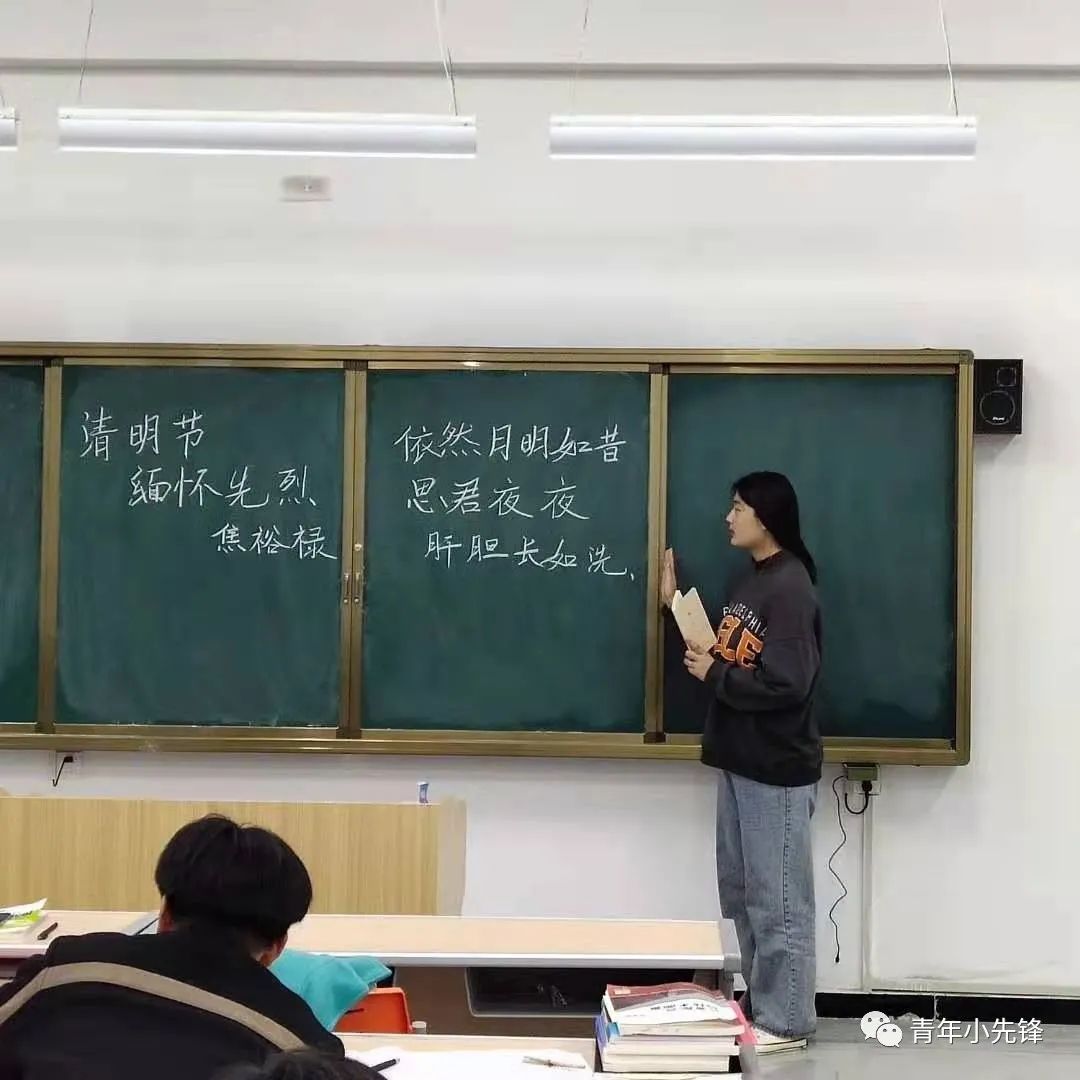 清明节
缅怀先烈
焦裕禄
依然月明如昔
思君夜夜
肝胆长如洗、
PHILADELPHIA
青年小先锋